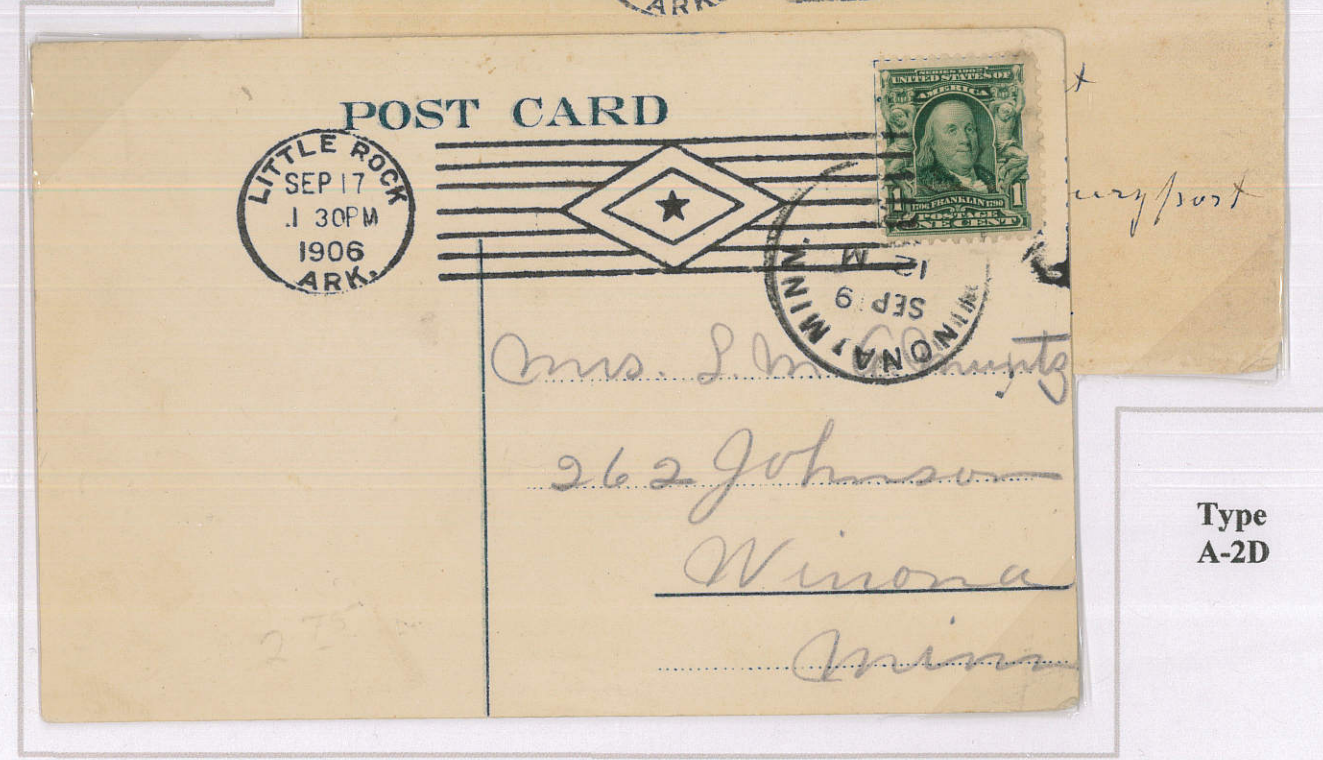 ARK.
POST CARD
LITTLE ROCK
SEP 17
1 30PM
1906
ARK.
SERIES 1902
UNITED STATES OF
AMERICA
1 1
1706 FRANKLIN 1790
POSTAGE
ONE CENT
WINONA, MINN.
SEP 19
12 M
uryport
Mrs. L. M.
262 Johnson
Winona
Minn
275
Type
A-2D